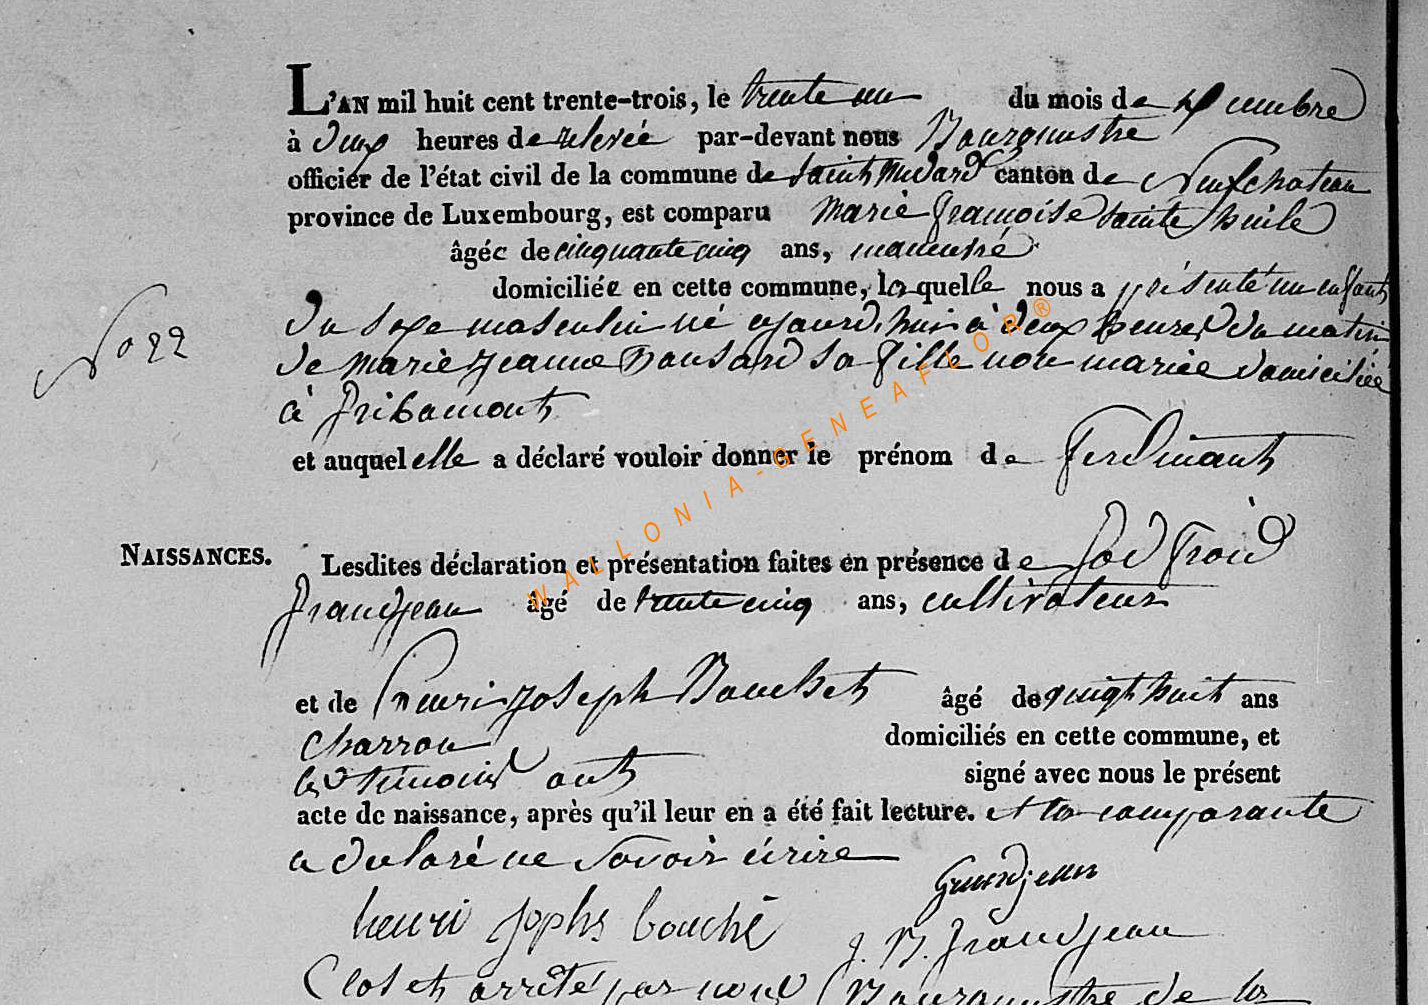 L'AN mil huit cent trente-trois, le trente un du mois de Xcembre
à deux heures de relevée par-devant nous Bourgmestre
officier de l'état civil de la commune de Saint Medard canton de Neufchateau
province de Luxembourg, est comparu Marie françoise Sainte huile
âgée de cinquante cinq ans,
domiciliée en cette commune, laquelle nous a présenté un enfant
Du Sexe masculin né aujourd'hui à deux heures du matin
No 22
de Marie jeanne hansard sa fille non mariée domiciliée
à Gribamont
et auquel elle a déclaré vouloir donner le prénom de Ferdinant
NAISSANCES.
Lesdites déclaration et présentation faites en présence de God froid
Grandjean âgé de trente cinq ans, cultivateur
et de henri joseph Bouchet âgé de vingt huit ans
Charron domiciliés en cette commune, et
les témoins ont signé avec nous le présent
acte de naissance, après qu'il leur en a été fait lecture. et la comparante
a declaré ne Savoir écrire
Grandjean
henri josphs bouché
Grandjean
Clot et arrêté par nous Bourgmestre de la
WALLONIA-GENEAFLOR®